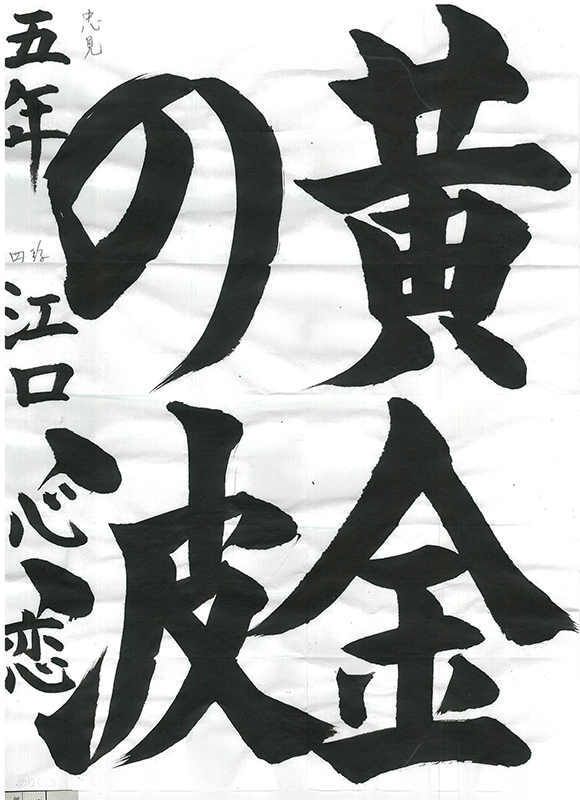 黄金
の波
五年 江口心恋
忠見
四珍